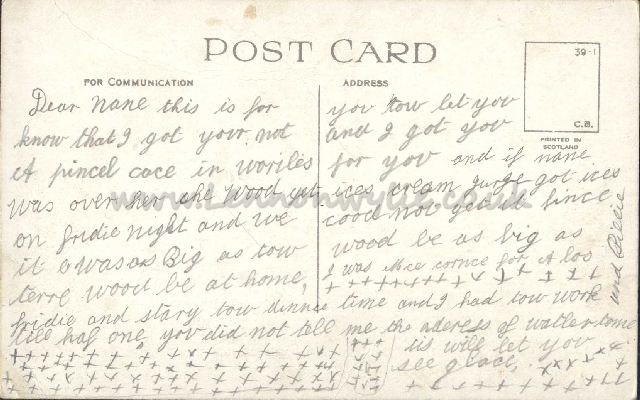 POST CARD
39-1
C.B.
PRINTED IN
SCOTLAND
FOR COMMUNICATION
ADDRESS
Dear nane this is for
know that I got your not
A pincel cace in
was over her she wood
on fridie night and we
it owas as Big as tow
terre wood be at home,
you tow let you
and I got you
for you and if nane
ices cream got ices
cood not
wood be as big as
I was for A los
and Billie
fridie and stary tow dinner time and I had tow work
till haf one, you did not tell me the aderess of
us will let you
see